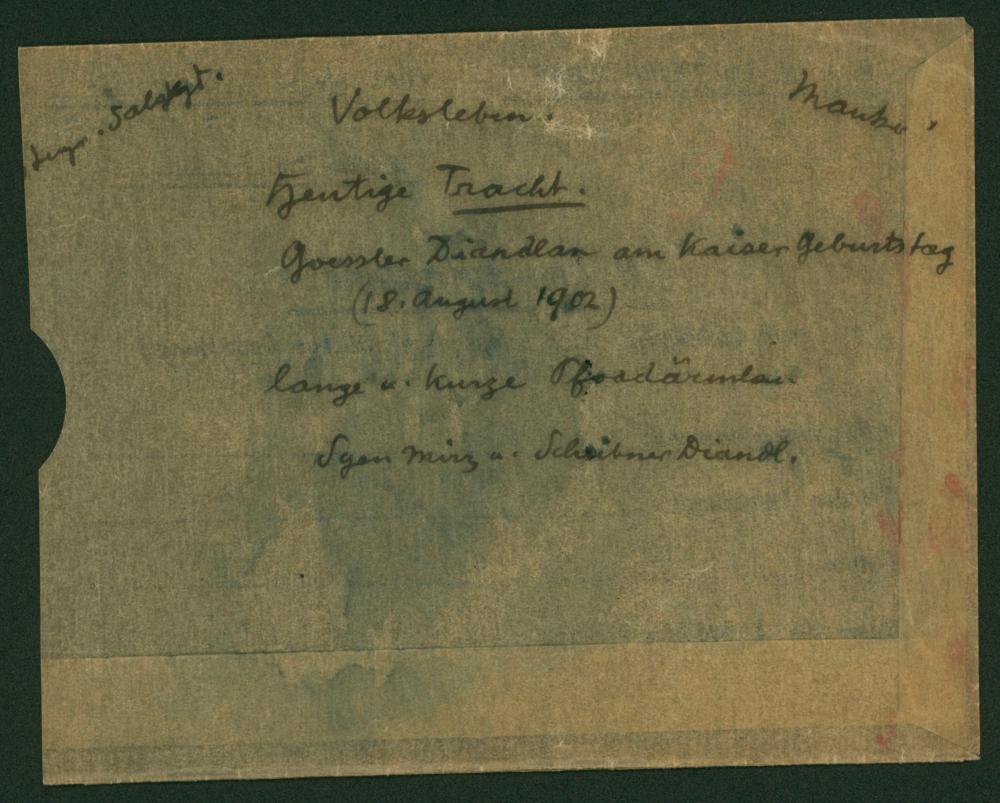 Salzkgt.
Volksleben.
Heutige Tracht.
Goessler Diandlan am Kaiser Geburtstag
(18. August 1902)
lange u. kurze Pfoadärmlan
Sgen Mirz u. Scheibner Diandl.